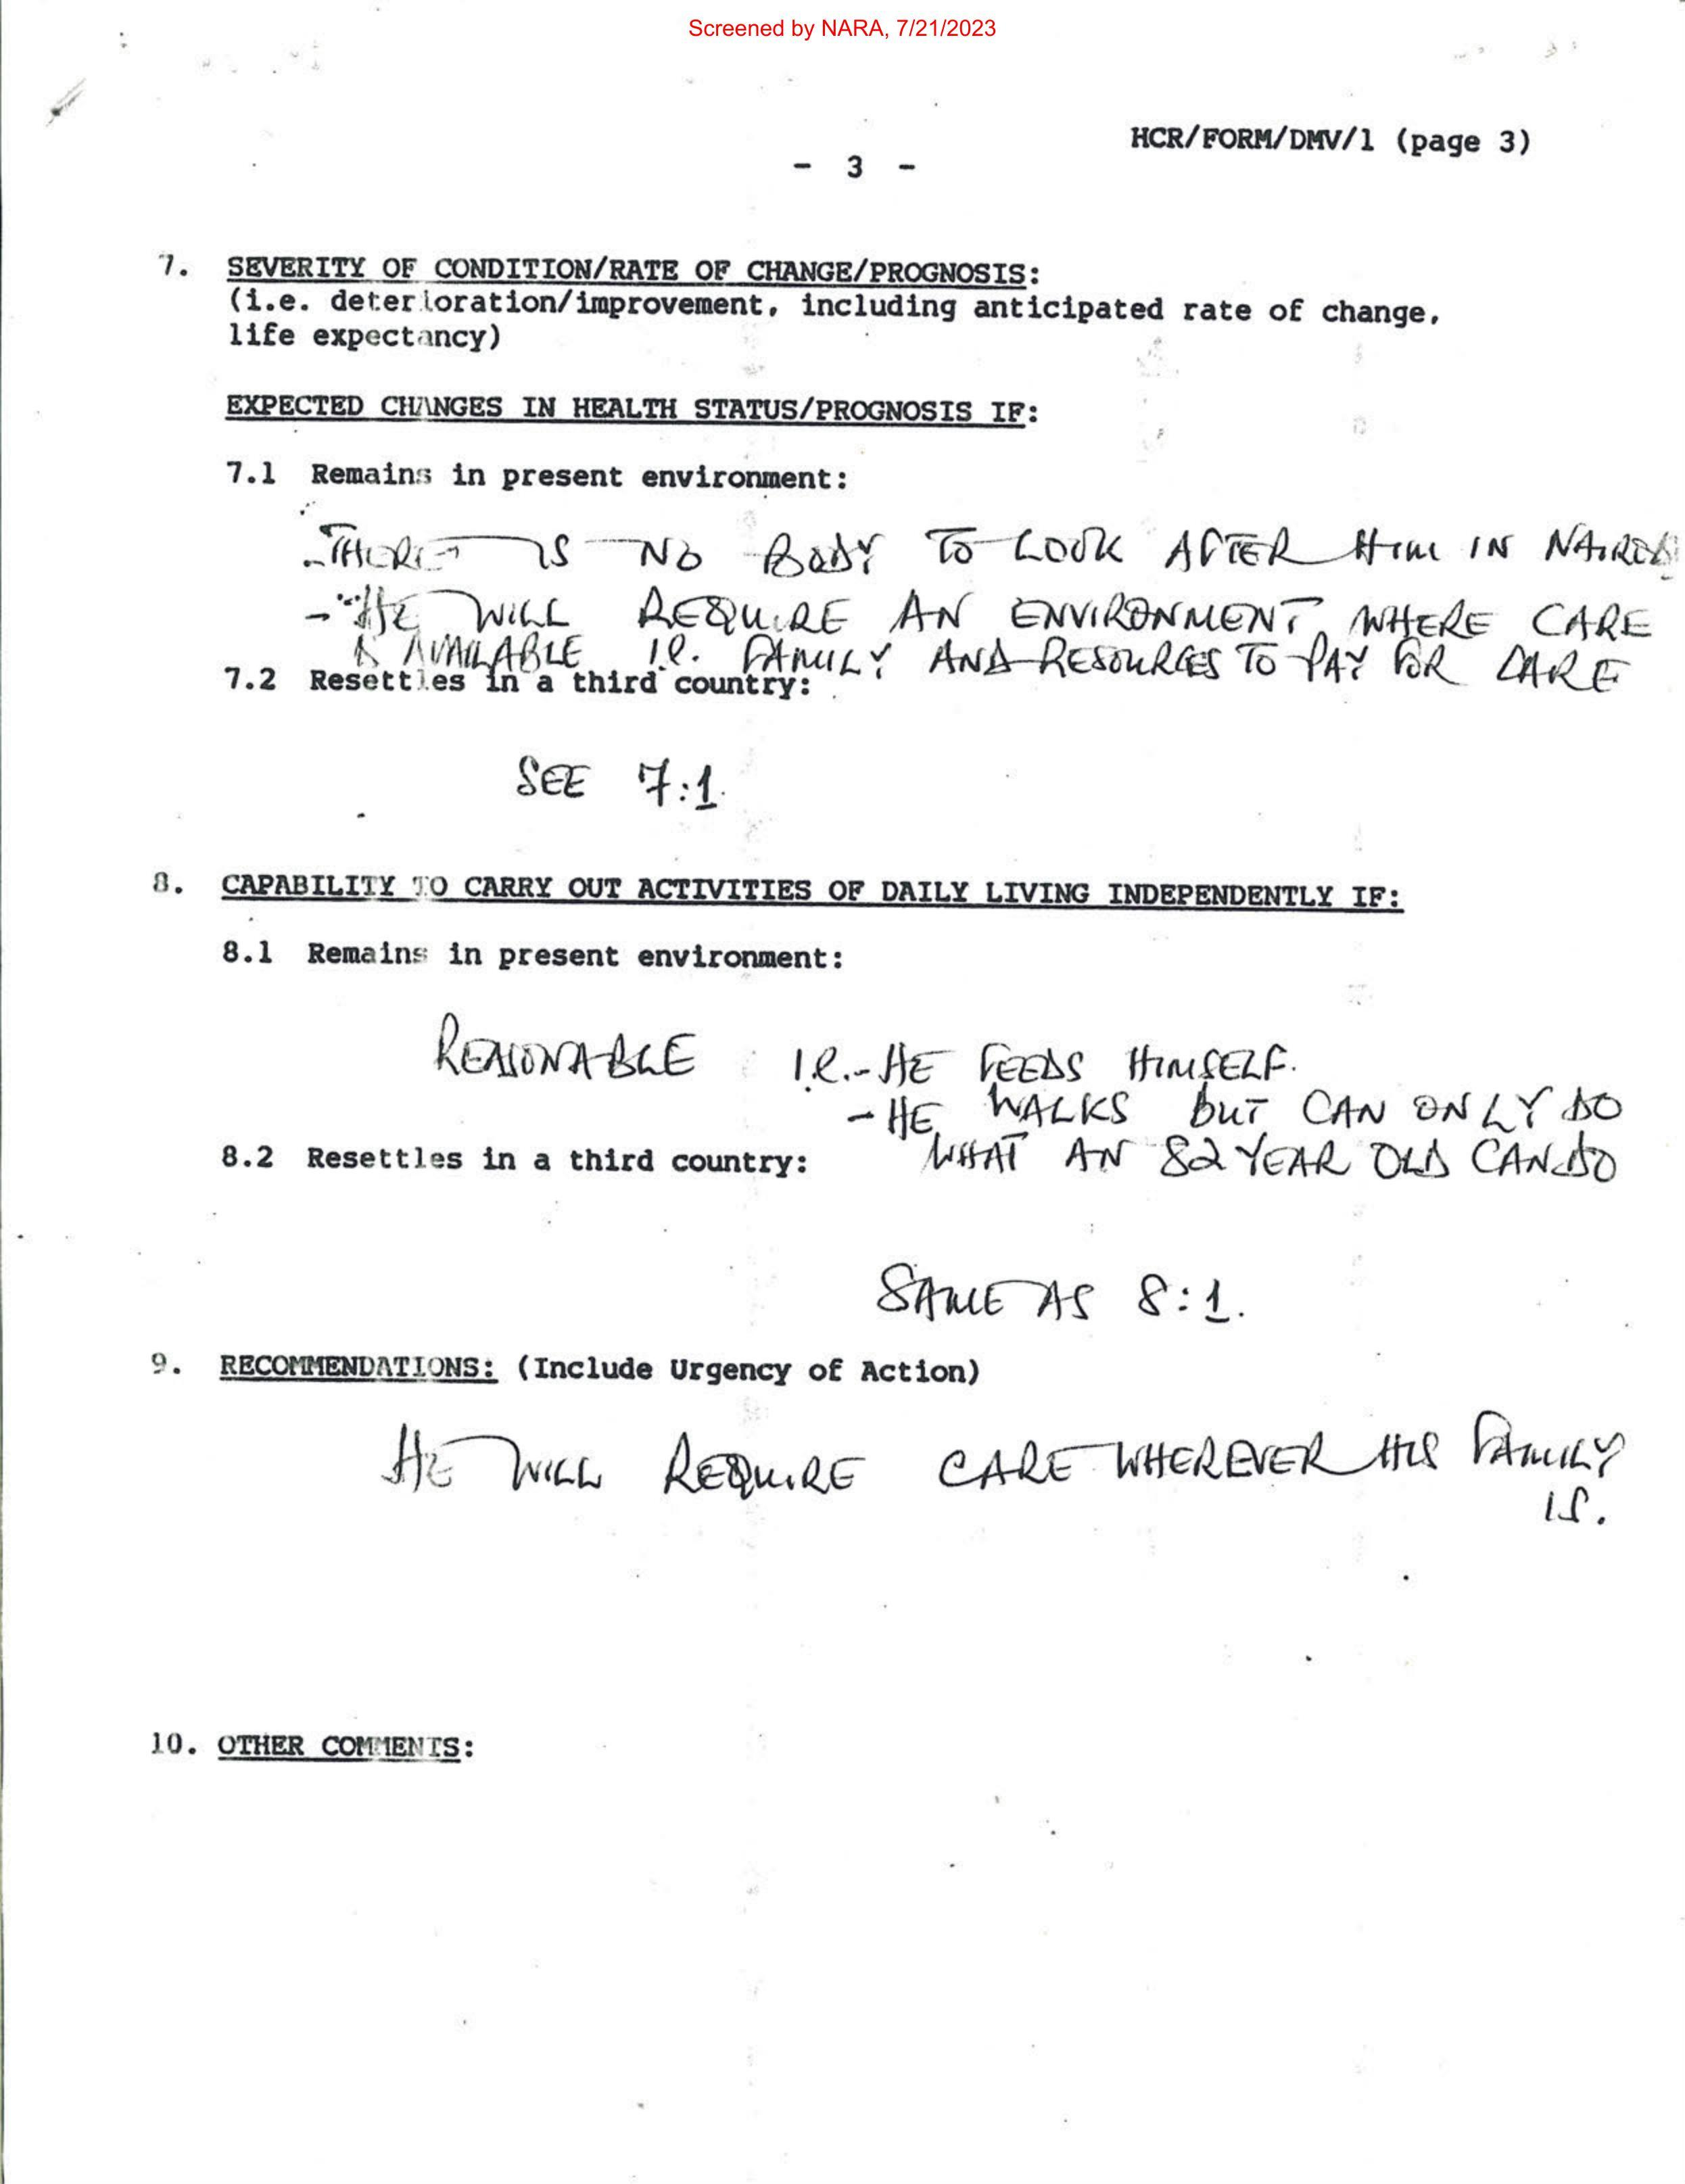 Screened by NARA, 7/21/2023
HCR/FORM/DMV/1 (page 3)
- 3 -
7. SEVERITY OF CONDITION/RATE OF CHANGE/PROGNOSIS:
(i.e. deterioration/improvement, including anticipated rate of change,
life expectancy)
EXPECTED CHANGES IN HEALTH STATUS/PROGNOSIS IF:
7.1 Remains in present environment:
- THERE IS NO BODY TO LOOK AFTER HIM IN NAIROBI
- HE WILL REQUIRE AN ENVIRONMENT WHERE CARE
IS AVAILABLE I.e. FAMILY AND RESOURCES TO PAY FOR CARE
7.2 Resettles in a third country:
SEE 7:1.
8. CAPABILITY TO CARRY OUT ACTIVITIES OF DAILY LIVING INDEPENDENTLY IF:
8.1 Remains in present environment:
REASONABLE I.e. - HE FEEDS HIMSELF.
- HE WALKS BUT CAN ONLY DO
WHAT AN 82 YEAR OLD CAN DO
8.2 Resettles in a third country:
SAME AS 8:1.
9. RECOMMENDATIONS: (Include Urgency of Action)
HE WILL REQUIRE CARE WHEREVER HIS FAMILY
IS.
10. OTHER COMMENTS: